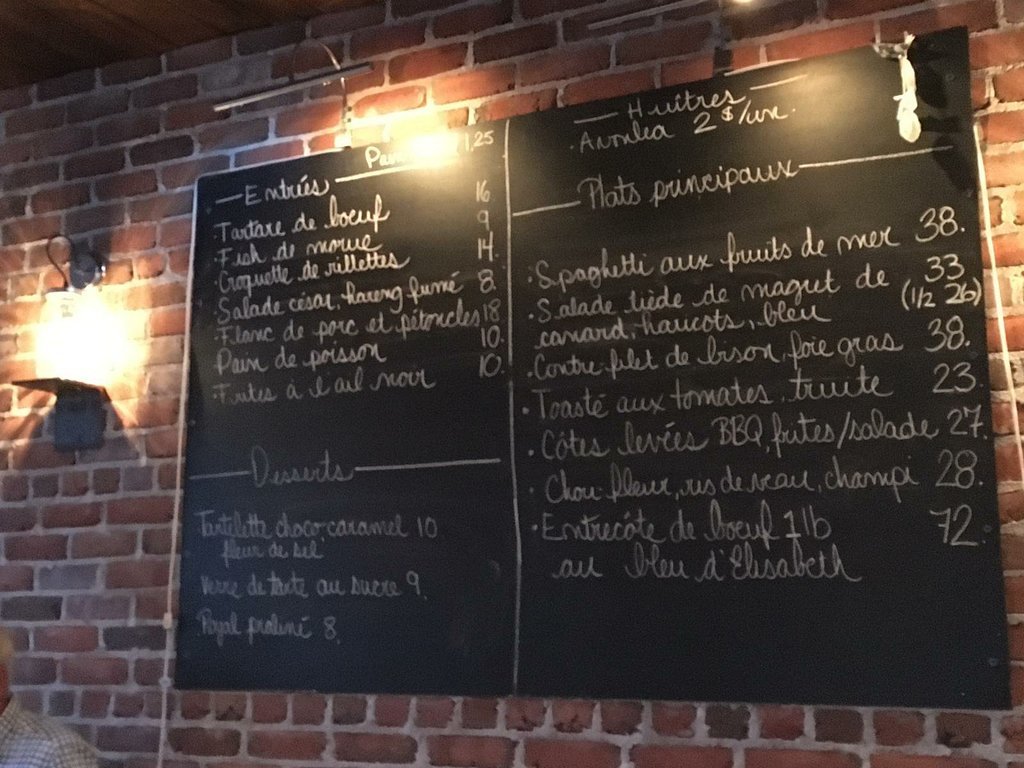 Pain 1,25
Entrées
Tartare de boeuf 16
Fish de morue 9
Croquette de rillettes 14
Salade césar, hareng fumé 8
Flanc de porc et pétoncles 18
Pain de poisson 10
Frites à l'ail noir 10
Desserts
Tartelette choco, caramel 10
fleur de sel
Verre de tarte au sucre 9
Royal praliné 8
Huîtres
Avonlea 2$/un
Plats principaux
Spaghetti aux fruits de mer 38
Salade tiède de magret de 33
canard, haricots, bleu (1/2 26)
Contre filet de bison, foie gras 38
Toasté aux tomates, truite 23
Côtes levées BBQ, frites/salade 27
Chou-fleur, ris de veau, champi 28
Entrecôte de boeuf 1lb 72
au bleu d'Elisabeth